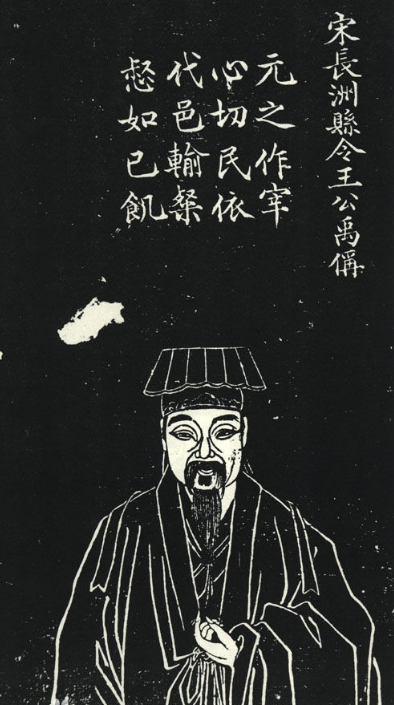 宋長洲縣令王公禹偁
元之作宰
心切民依
代邑輸粲
惄如己飢